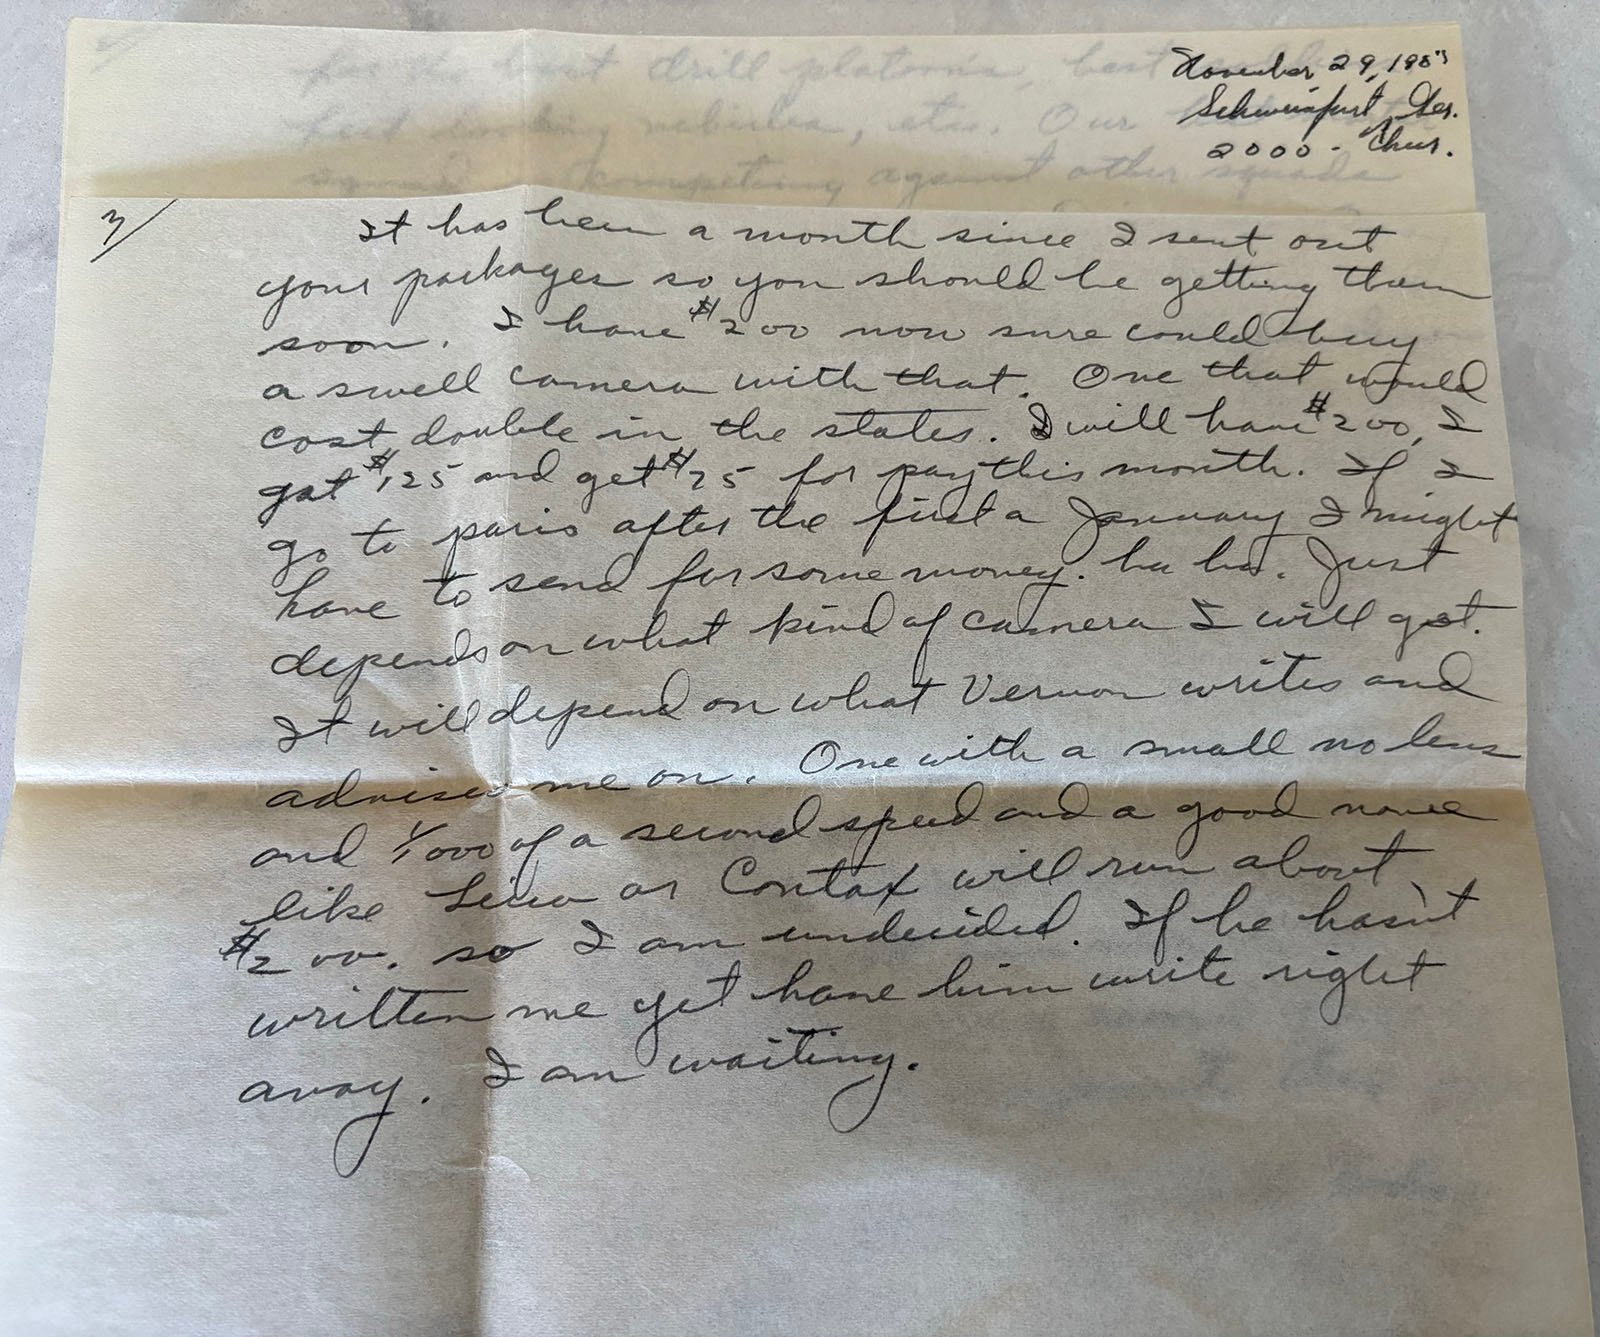 November 29, 195
Schweinfurt, Ger.
2000 - Thur.
for the best drill platoons, best
feet looking vehicles, etc. Our
squad competing against other squads
3/
It has been a month since I sent out
your packages so you should be getting them
soon. I have $200 now sure could buy
a swell camera with that. One that would
cost double in the states. I will have $200, I
got $125 and get $75 for pay this month. If I
go to paris after the first a January I might
have to send for some money. ha ha. Just
depends on what kind of camera I will get.
It will depend on what Vernon writes and
advises me on. One with a small no lens
and 1/1000 of a second speed and a good name
like Leica or Contax will run about
$200. so I am undecided. If he hasn't
written me yet have him write right
away. I am waiting.